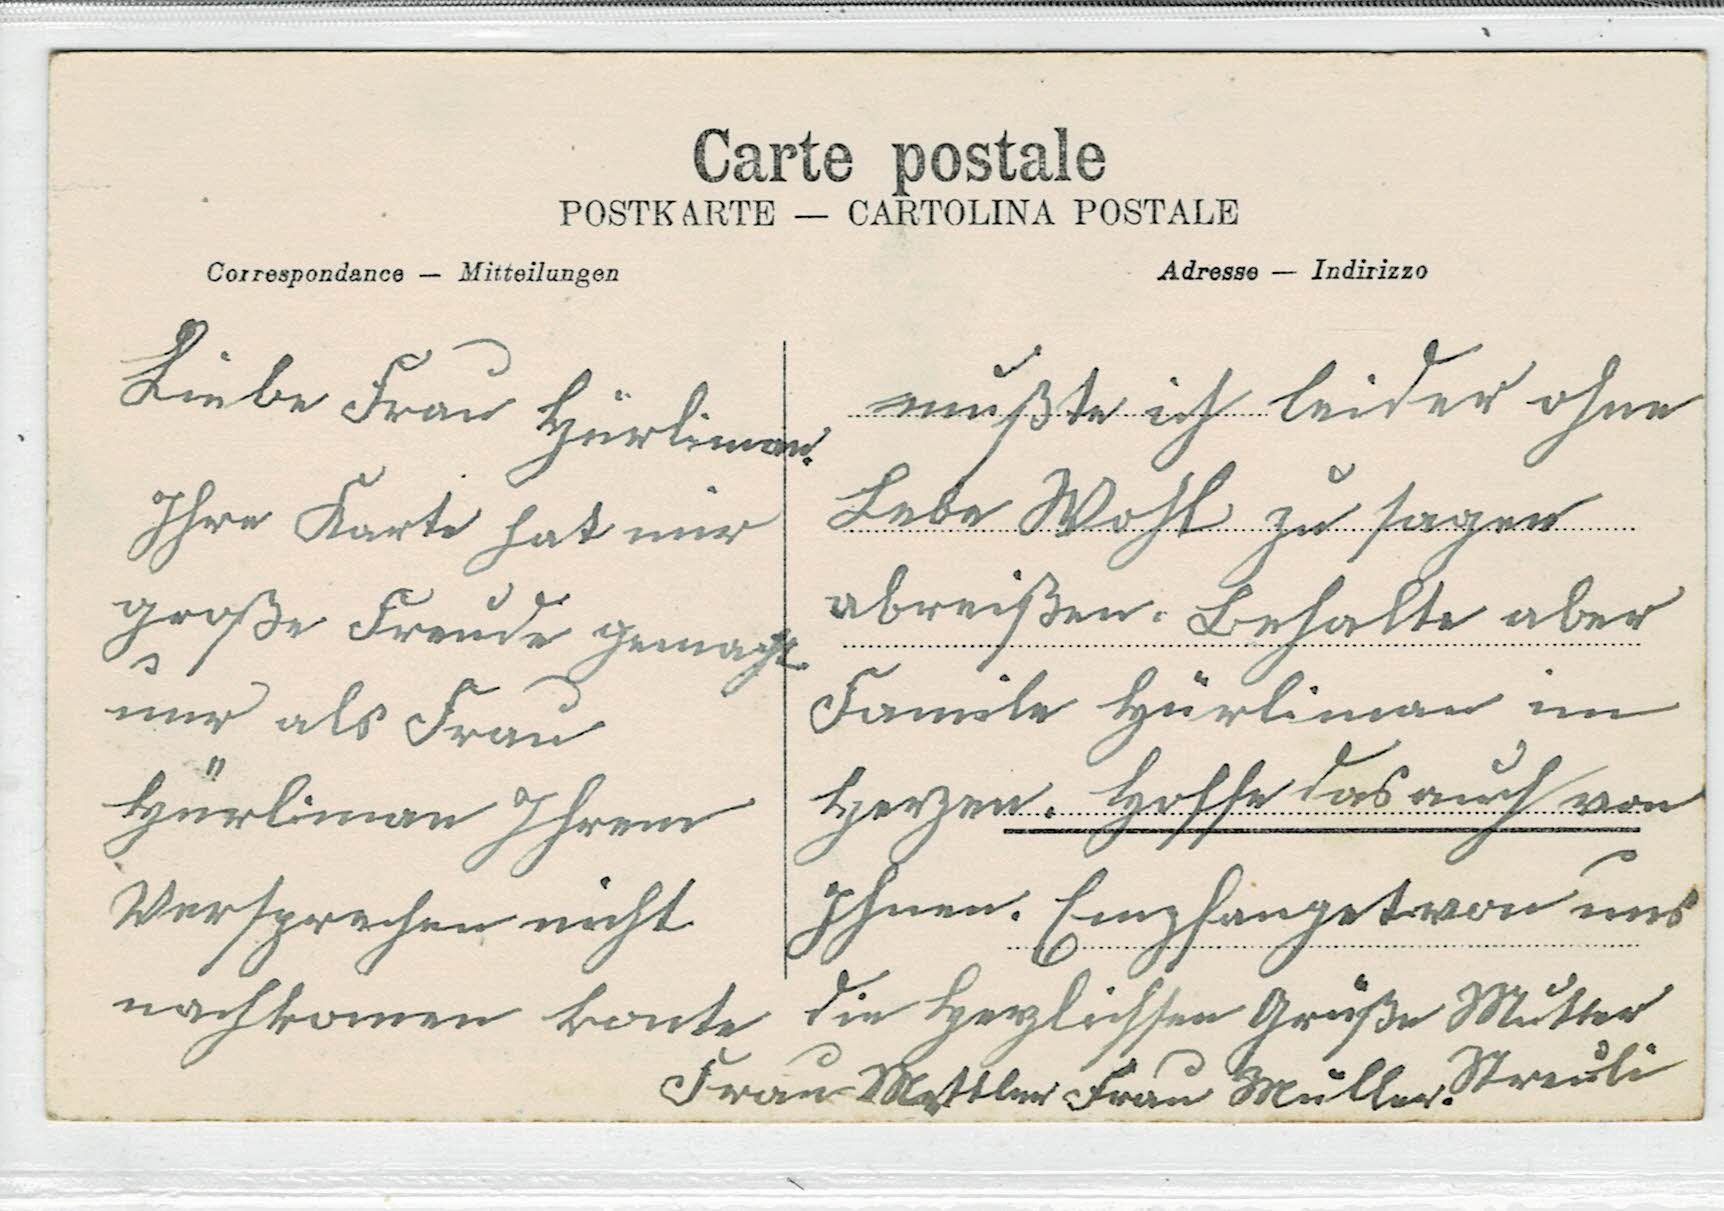 Carte postale
POSTKARTE — CARTOLINA POSTALE
Correspondance — Mitteilungen
Adresse — Indirizzo
Liebe Frau Hürliman.
Ihre Karte hat mir
große Freude gemacht
nur als Frau
Hürliman Ihrem
Versprechen nicht
nachkomen konte
mußte ich leider ohne
Lebe Wohl zu sagen
abreißen. Behalte aber
Famile Hürliman im
Herzen. Hoffe das auch von
Ihnen. Empfanget von uns
die Herzlichsen Grüße Mutter
Frau Mettler Frau Müller. Streuli